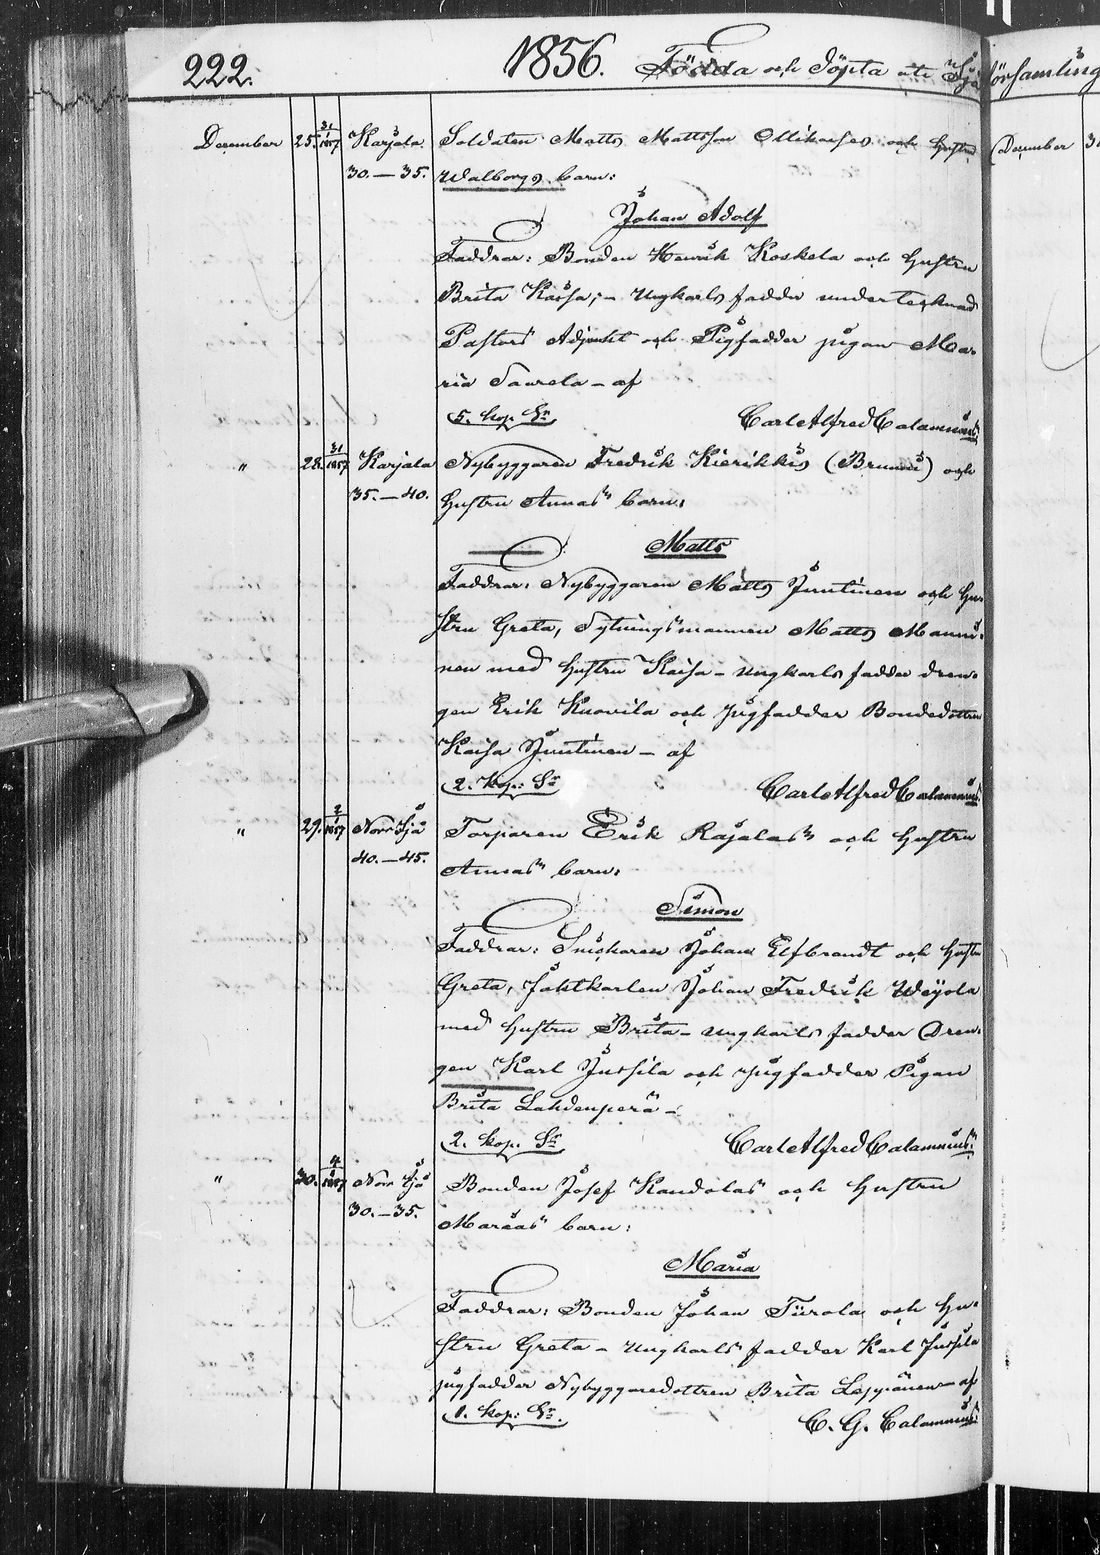 222. 1856. Födda och Döpta uti
församling
December 25. 31/1 1857 Karjala Soldaten Matts Mattsson och Hustru
30.—35. Walborgs barn:
Johan Adolf
Faddrar: Bonden Henrik Koskela och Hustru
Brita Kaisa,— Ungkarls fadder undertecknad
Pastors Adjunkt och Pigfadder pigan Ma-
ria Saurela — af
5. kop. Sr. Carl Alfred Calamnius.
" 28. 31/1 1857 Karjala Nybyggaren Fredrik Kierikkis (Brunni) och
35.—40. Hustru Annas barn:
Matts
Faddrar: Nybyggaren Matts Juntinen och Hu-
stru Greta, Sytningsmannen Matts Manni-
nen med Hustru Kaisa — Ungkarls fadder dren-
gen Erik Kuovila och pigfadder Bondedottren
Kaisa Juntinen — af
2. kop. Sr Carl Alfred Calamnius.
" 29. 2/1 1857 Norr Ijå Torparen Erik Rajalas och Hustru
40.—45. Annas barn:
Simon
Faddrar: Snickaren Johan Elfbrandt och Hustru
Greta, Johan Fredrik Weijola
med Hustru Brita — Ungkarls fadder Dren-
gen Karl Jussila och pigfadder Pigan
Brita Lahdenperä —
2. kop. Sr Carl Alfred Calamnius.
" 30. 4/1 1857 Norr Ijå Bonden Josef Kandolas och Hustru
30.—35. Marias barn:
Maria
Faddrar: Bonden Johan Tiirola och Hu-
stru Greta — Ungkarls fadder Karl Jussila
pigfadder Nybyggaredottren Brita Leppänen — af
1. kop. Sr. C. G. Calamnius.
December